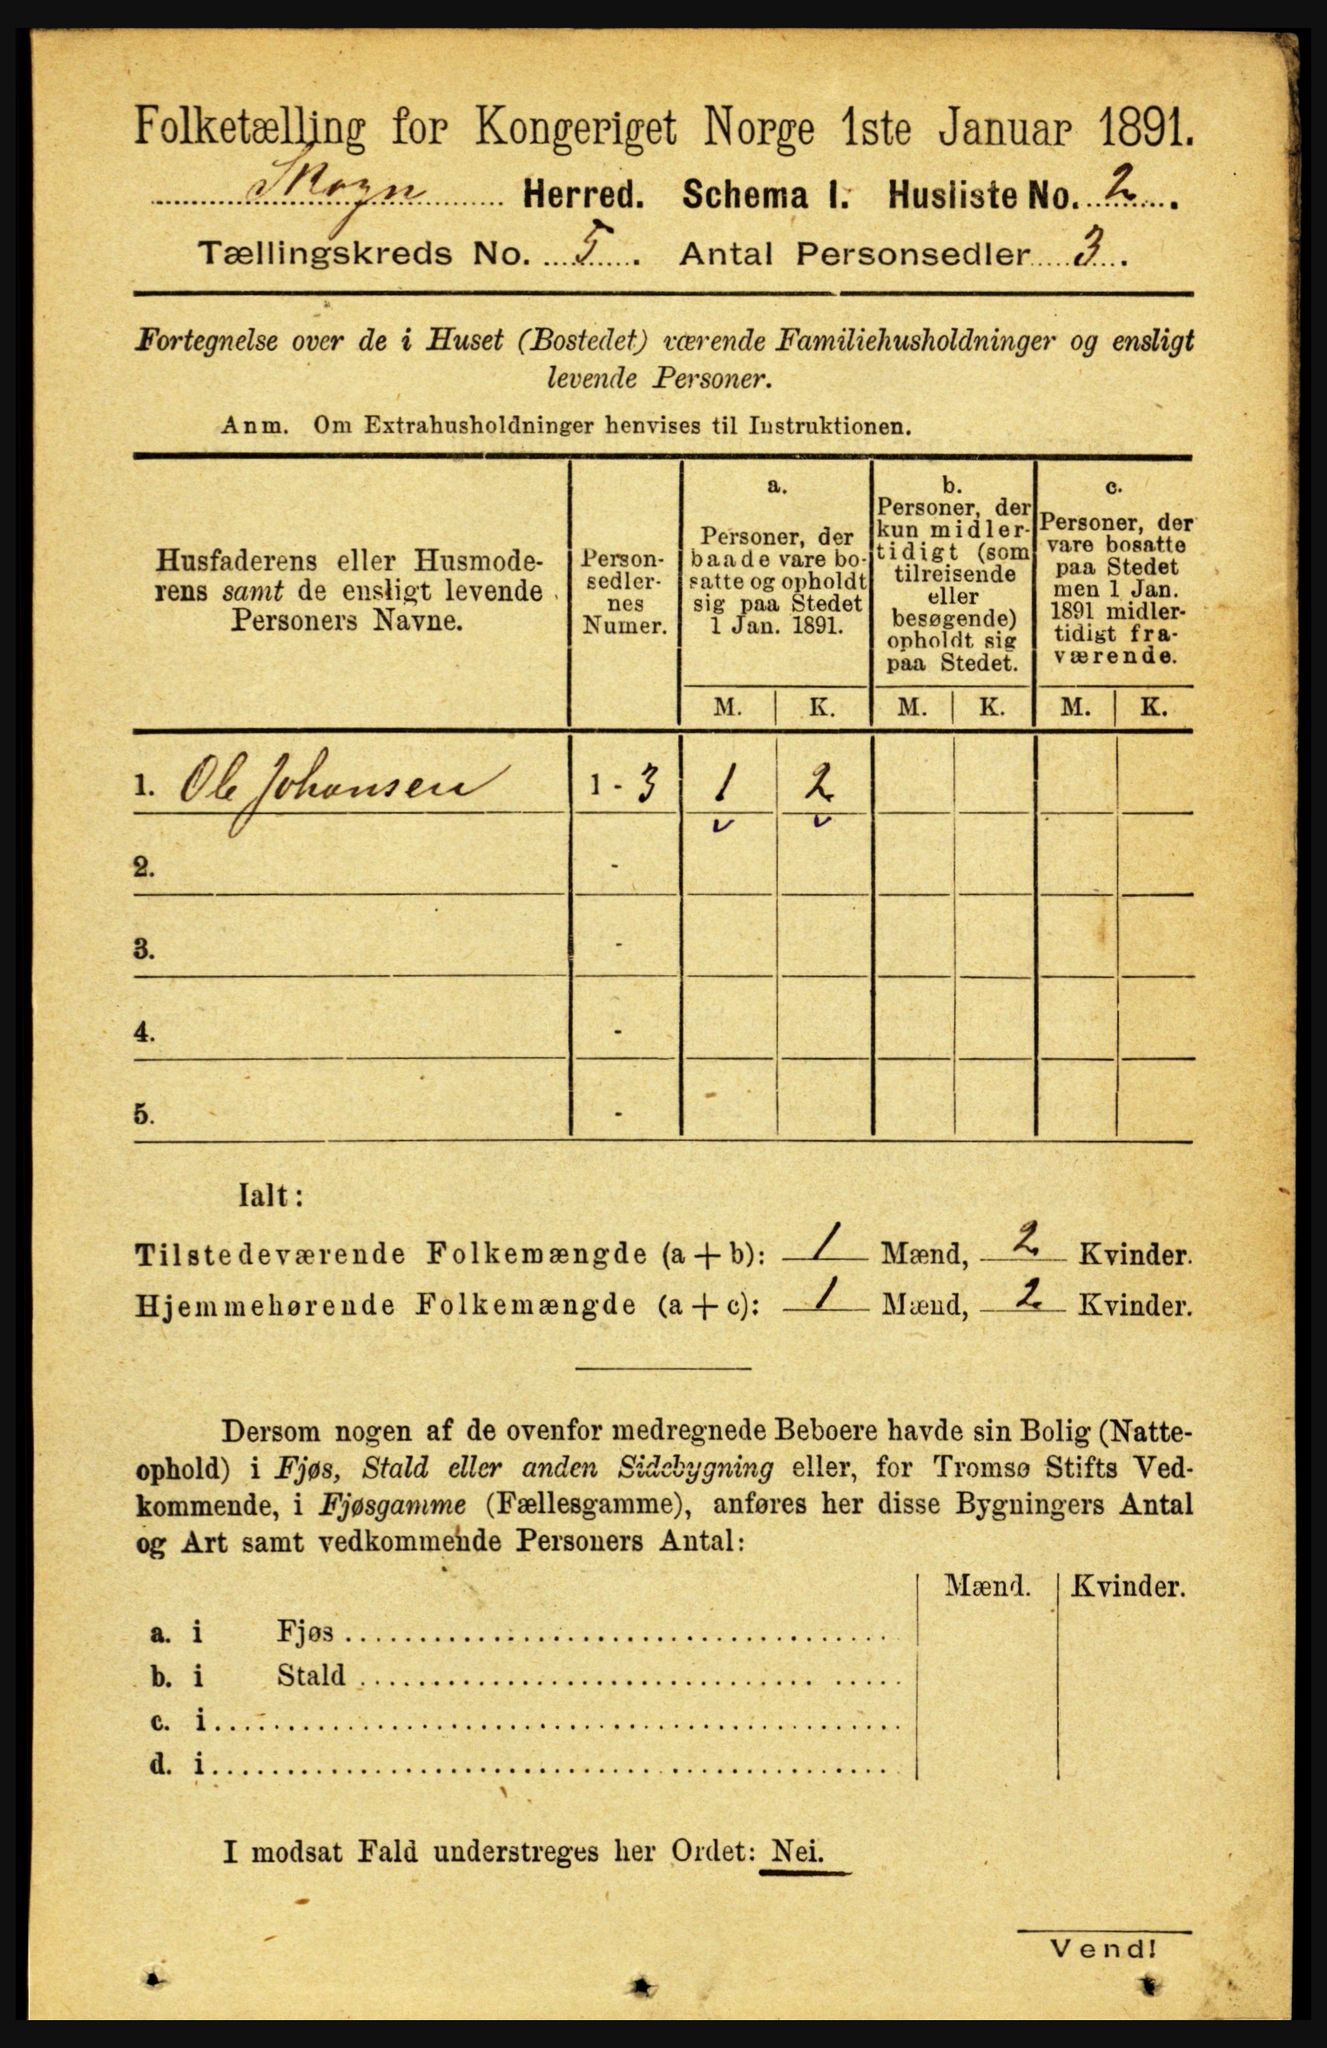 Folketælling for Kongeriget Norge 1ste Januar 1891.
Skogn Herred. Schema I. Husliste No. 2.
Tællingskreds No. 5. Antal Personsedler 3.
Fortegnelse over de i Huset (Bostedet) værende Familiehusholdninger og ensligt
levende Personer.
Anm. Om Extrahusholdninger henvises til Instruktionen.
Husfaderens eller Husmode-
rens samt de ensligt levende
Personers Navne.
Person-
sedler-
nes
Numer.
a.
Personer, der
baade vare bo-
satte og opholdt
sig paa Stedet
1 Jan. 1891.
b.
Personer, der
kun midler-
tidigt (som
tilreisende
eller
besøgende)
opholdt sig
paa Stedet.
c.
Personer, der
vare bosatte
paa Stedet
men 1 Jan.
1891 midler-
tidigt fra-
værende.
M. K. M. K. M. K.
1. Ole Johansen 1 - 3 1 2
2. -
3. -
4. -
5. -
Ialt:
Tilstedeværende Folkemængde (a + b): 1 Mænd, 2 Kvinder.
Hjemmehørende Folkemængde (a + c): 1 Mænd, 2 Kvinder.
Dersom nogen af de ovenfor medregnede Beboere havde sin Bolig (Natte-
ophold) i Fjøs, Stald eller anden Sidebygning eller, for Tromsø Stifts Ved-
kommende, i Fjøsgamme (Fællesgamme), anføres her disse Bygningers Antal
og Art samt vedkommende Personers Antal:
Mænd. Kvinder.
a. i Fjøs
b. i Stald
c. i
d. i
I modsat Fald understreges her Ordet: Nei.
Vend!